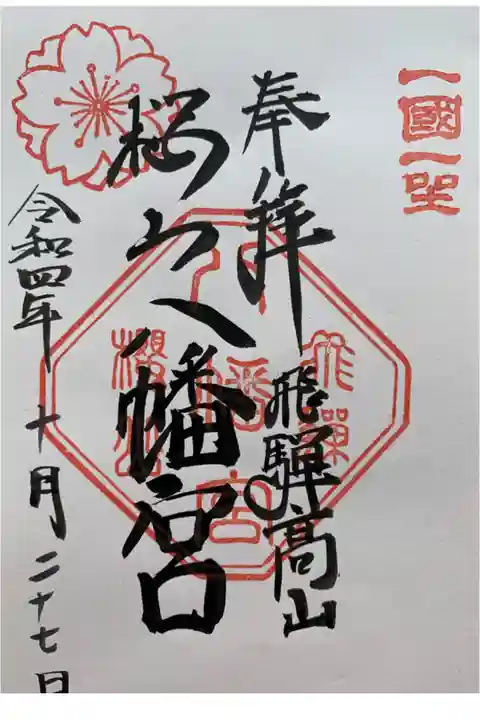 一國一聖
奉拝
飛騨高山
桜山八幡宮
令和四年 十月二十七日
飛騨
八幡宮
櫻山